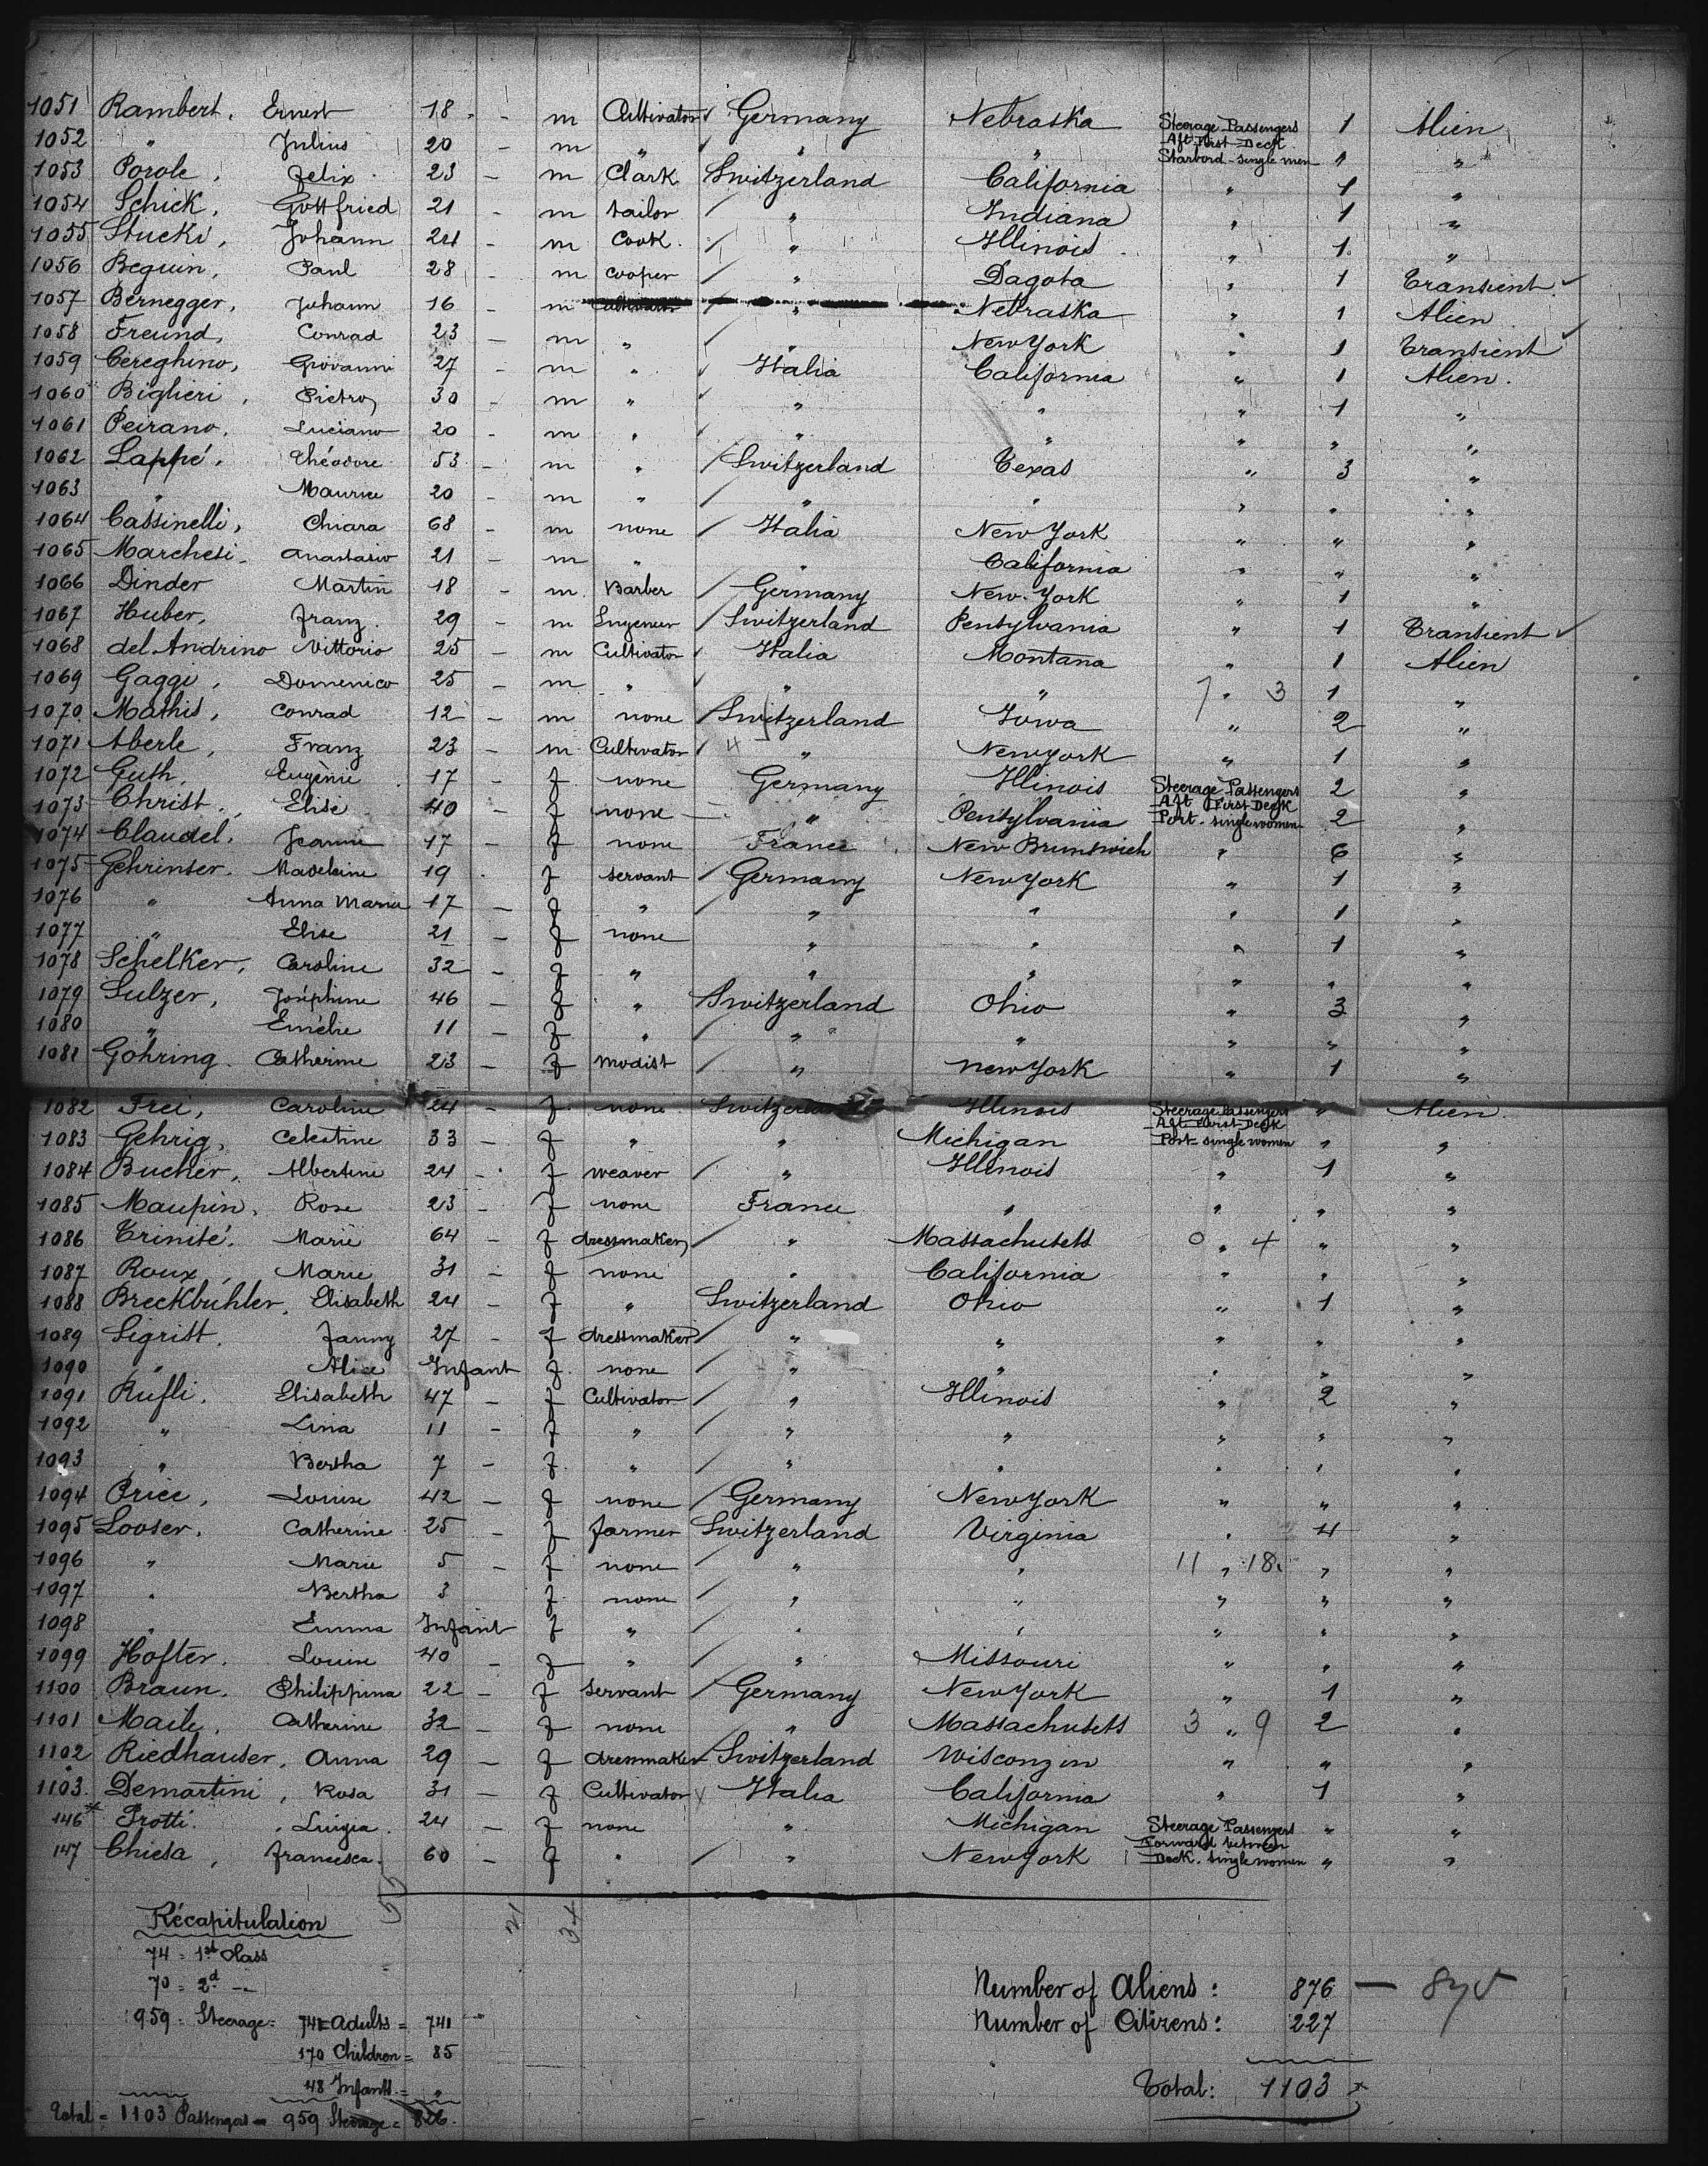 1051 Rambert, Ernest 18 - m Cultivator Germany Nebraska Steerage Passengers Aft First Deck Starbord - single men 1 Alien
1052 " Julius 20 - m " " " " 1 "
1053 Porole, Felix 23 - m Clark Switzerland California " 1 "
1054 Schick, Gottfried 21 - m tailor " Indiana " 1 "
1055 Stucki, Johann 24 - m Cook " Illinois " 1 "
1056 Beguin, Paul 28 - m cooper " Dagota " 1 Transient
1057 Bernegger, Johann 16 - m Cultivator " Nebraska " 1 Alien
1058 Freund, Conrad 23 - m " " New York " 1 Transient
1059 Cereghino, Giovanni 27 - m " Italia California " 1 Alien
1060 Biglieri, Pietro 30 - m " " " " 1 "
1061 Peirano, Luciano 20 - m " " " " " "
1062 Lappé, Théodore 53 - m " Switzerland Texas " 3 "
1063 " Maurice 20 - m " " " " " "
1064 Cassinelli, Chiara 68 - m none Italia New York " " "
1065 Marchesi, Anastasio 21 - m " " California " " "
1066 Dinder Martin 18 - m Barber Germany New-York " 1 "
1067 Huber, Franz 29 - m Ingeneur Switzerland Pensylvania " 1 Transient
1068 del Andrino Vittorio 25 - m Cultivator Italia Montana " 1 Alien
1069 Gaggi, Domenico 25 - m " " " 7 " 3 1 "
1070 Mathis, Conrad 12 - m none Switzerland Iowa " 2 "
1071 Aberle, Franz 23 - m Cultivator 4 " New york " 1 "
1072 Guth, Eugénie 17 - f none Germany Illinois Steerage Passengers Aft First Deck Port - single women 2 "
1073 Christ, Elise 40 - f none " Pensylvania 2 "
1074 Claudel, Jeanne 17 - f none France New Brunswich " 6 "
1075 Gehrinser, Madeleine 19 f servant Germany New York " 1 "
1076 " Anna Maria 17 - f " " " " 1 "
1077 " Elise 21 - f none " " " 1 "
1078 Schelker, Caroline 32 - f " " " " " "
1079 Sulzer, Joséphine 46 - f " Switzerland Ohio " 3 "
1080 " Emélie 11 - f " " " " " "
1081 Göhring, Catherine 23 - f Modist " New York " 1 "
1082 Frei, Caroline 24 - f none Switzerland Illinois Steerage Passengers Aft First Deck Port - single women " Alien
1083 Gehrig, Celestine 33 - f " " Michigan " "
1084 Bucher, Albertine 24 - f weaver " Illinois " 1 "
1085 Maupin, Rose 23 - f none France " " " "
1086 Trinité, Marie 64 - f dressmaker " Massachusets 0 " 4 " "
1087 Roux, Marie 31 - f none " California " " "
1088 Breckbühler, Elisabeth 24 - f " Switzerland Ohio " 1 "
1089 Sigrist, Fanny 27 - f dressmaker " " " " "
1090 " Alice Infant f none " " " " "
1091 Rufli, Elisabeth 47 - f Cultivator " Illinois " 2 "
1092 " Lina 11 - f " " " " " "
1093 " Bertha 7 - f " " " " " "
1094 Price, Louise 42 - f none Germany New York " " "
1095 Looser, Catherine 25 - f farmer Switzerland Virginia " 4 "
1096 " Marie 5 - f none " " 11 " 18 " "
1097 " Bertha 3 f none " " " " "
1098 " Emma Infant f " " " " " "
1099 Hofter, Louise 40 - f " " Missouri " " "
1100 Braun, Philippina 22 - f servant Germany New York " 1 "
1101 Maile, Catherine 32 - f none " Massachusets 3 " 9 2 "
1102 Riedhauser, Anna 29 - f dressmaker Switzerland Wisconzin " " "
1103 Demartini, Rosa 31 - f Cultivator Italia California " 1 "
146* Trotti, Luigia 24 - f none " Michigan Steerage Passengers Forward between Deck. single women " "
147 Chiesa, Francesca 60 - f " " New York " "
55 21 34
Récapitulation
74 = 1st Class
70 = 2d -
959 = Steerage = 741 = Adults = 741
170 Children = 85
48 Infants = "
Total = 1103 Passengers = 959 Steerage = 826
Number of Aliens : 876 - 875
Number of Citizens : 227
Total : 1103